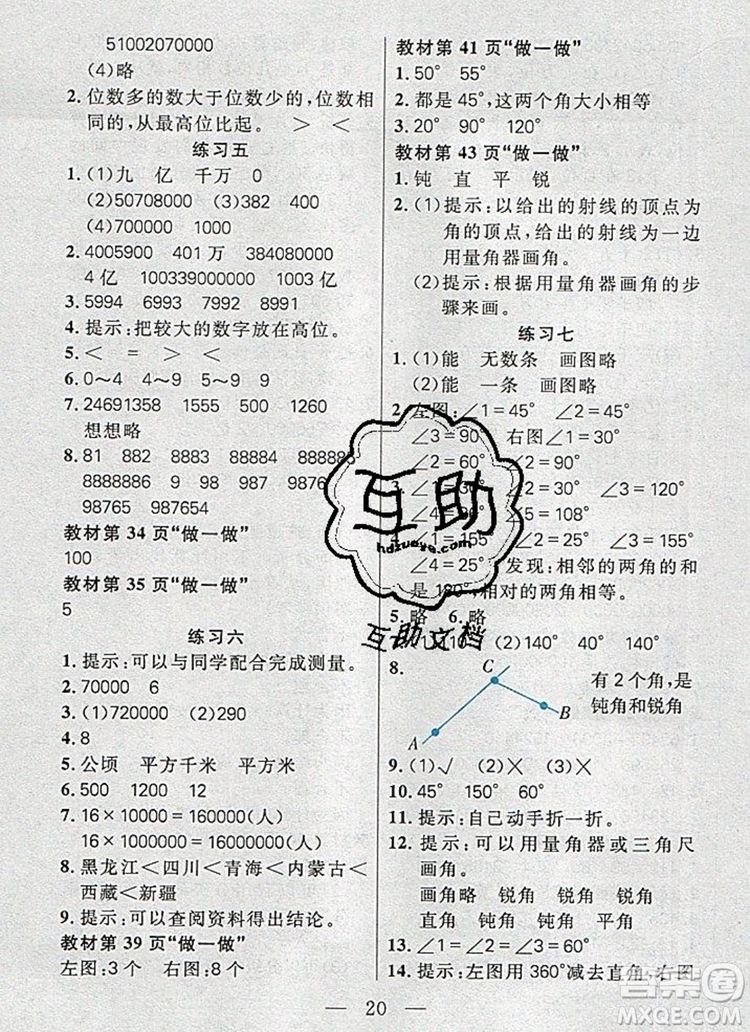 51002070000
(4)略
2. 位数多的数大于位数少的,位数相
同的,从最高位比起。 > <
练习五
1. (1)九 亿 千万 0
(2)50708000 (3)382 400
(4)700000 1000
2. 4005900 401万 384080000
4亿 100339000000 1003亿
3. 5994 5993 7992 8991
4. 提示:把较大的数字放在高位。
5. < = > <
6. 0~4 4~9 5~9 9
7. 24691358 1555 500 1260
想想略
8. 81 882 8883 88884 888885
8888886 9 98 987 9876
98765 987654
教材第 34 页“做一做”
100
教材第 35 页“做一做”
5
练习六
1. 提示:可以与同学配合完成测量。
2. 70000 6
3. (1)720000 (2)290
4. 8
5. 公顷 平方千米 平方米
6. 500 1200 12
7. 16×10000=160000(人)
16×1000000=16000000(人)
8. 黑龙江<四川<青海<内蒙古<
西藏<新疆
9. 提示:可以查阅资料得出结论。
教材第 39 页“做一做”
左图:3个 右图:8个
教材第 41 页“做一做”
1. 50° 55°
2. 都是45°,这两个角大小相等
3. 20° 90° 120°
教材第 43 页“做一做”
1. 钝 直 平 锐
2. (1)提示:以给出的射线的顶点为
角的顶点,给出的射线为一边
用量角器画角。
(2)提示:根据用量角器画角的步
骤来画。
练习七
1. (1)能 无数条 画图略
(2)能 一条 画图略
2. 左图:∠1=45° ∠2=45°
∠3=90° 右图∠1=30°
∠2=60° ∠3=90°
∠1=30° ∠2=30° ∠3=120°
∠4=90° ∠5=108°
∠1=155° ∠2=25° ∠3=155°
∠4=25° 发现:相邻的两角的和
是180°,相对的两角相等。
5. 略 6. 略
(1)10° 110° (2)140° 40° 140°
8. A C B 有2个角,是
钝角和锐角
9. (1)√ (2)× (3)×
10. 45° 150° 60°
11. 提示:自己动手折一折。
12. 提示:可以用量角器或三角尺
画角。
画角略 锐角 锐角 锐角
直角 钝角 钝角 平角
13. ∠1=∠2=∠3=60°
14. 提示:左图用360°减去直角;右图
20
互助
hdzuoye.com
互助文档
答案圈
MXQE.COM